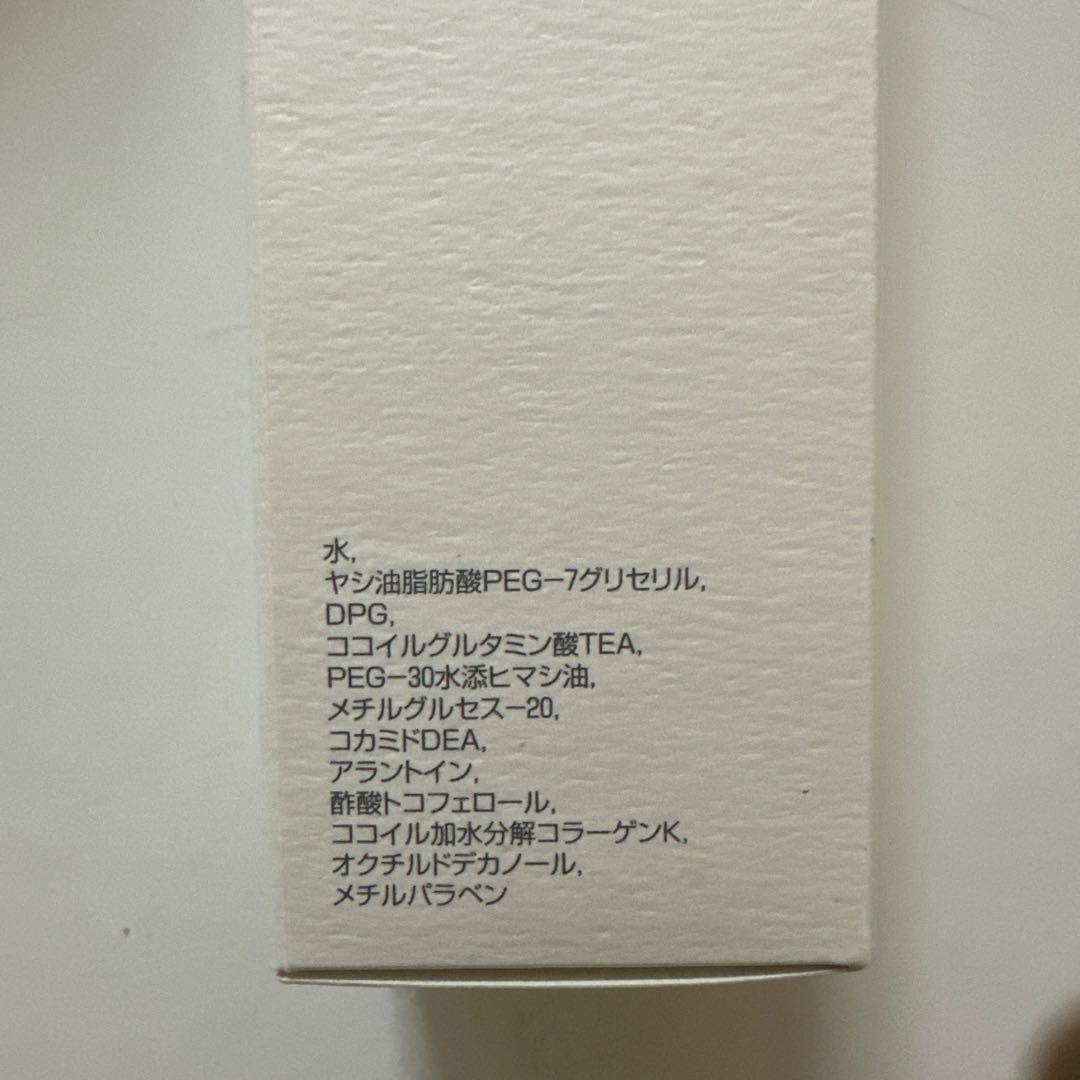 水,
ヤシ油脂肪酸PEG−7グリセリル,
DPG,
ココイルグルタミン酸TEA,
PEG−30水添ヒマシ油,
メチルグルセス−20,
コカミドDEA,
アラントイン,
酢酸トコフェロール,
ココイル加水分解コラーゲンK,
オクチルドデカノール,
メチルパラベン